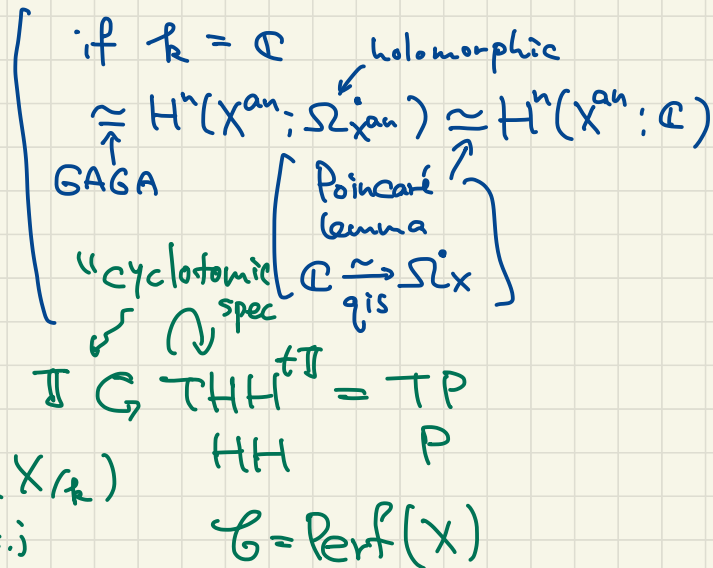 if k = ℂ
holomorphic
≅ Hⁿ(Xᵃⁿ; Ω•Xᵃⁿ) ≅ Hⁿ(Xᵃⁿ; ℂ)
GAGA
Poincaré
lemma
ℂ ~→ Ω•X
qis
"cyclotomic
spec
𝕋 G THH^t𝕋 = TP
HH P
X(/k)
𝒞 = Perf(X)